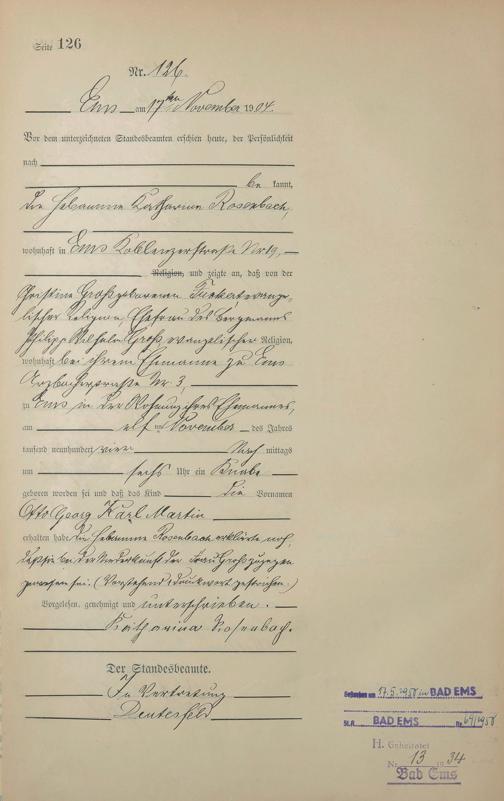 Seite 126
Nr. 126.
Ems am 17ten November 1904.
Vor dem unterzeichneten Standesbeamten erschien heute, der Persönlichkeit
nach
be kannt,
die Hebamme Katharina Rosenbach,
wohnhaft in Ems Koblenzerstraße Nr 19,
Religion, und zeigte an, daß von der
Christine Groß geborenen evange-
lischer Religion, Ehefrau des Bergmanns
Philipp Wilhelm Groß, evangelischer Religion,
wohnhaft bei ihrem Ehemanne zu Ems
Arzbacherstraße Nr. 3,
zu Ems in der Wohnung ihres Ehemannes,
am elf ten November des Jahres
tausend neunhundert vier Nach mittags
um sechs Uhr ein Knabe
geboren worden sei und daß das Kind die Vornamen
Otto Georg Karl Martin
erhalten habe. Die Hebamme Rosenbach erklärte noch,
daß sie bei der Niederkunft der Frau Groß zugegen
gewesen sei. (Vorstehend 1 Druckwort gestrichen.)
Vorgelesen, genehmigt und unterschrieben.
Katharina Rosenbach.
Der Standesbeamte.
In Vertretung
Gestorben am 17.5.1958 in BAD EMS
St.A. BAD EMS Nr. 64/1958
H. Geheiratet
Nr. 13 1934
Bad Ems